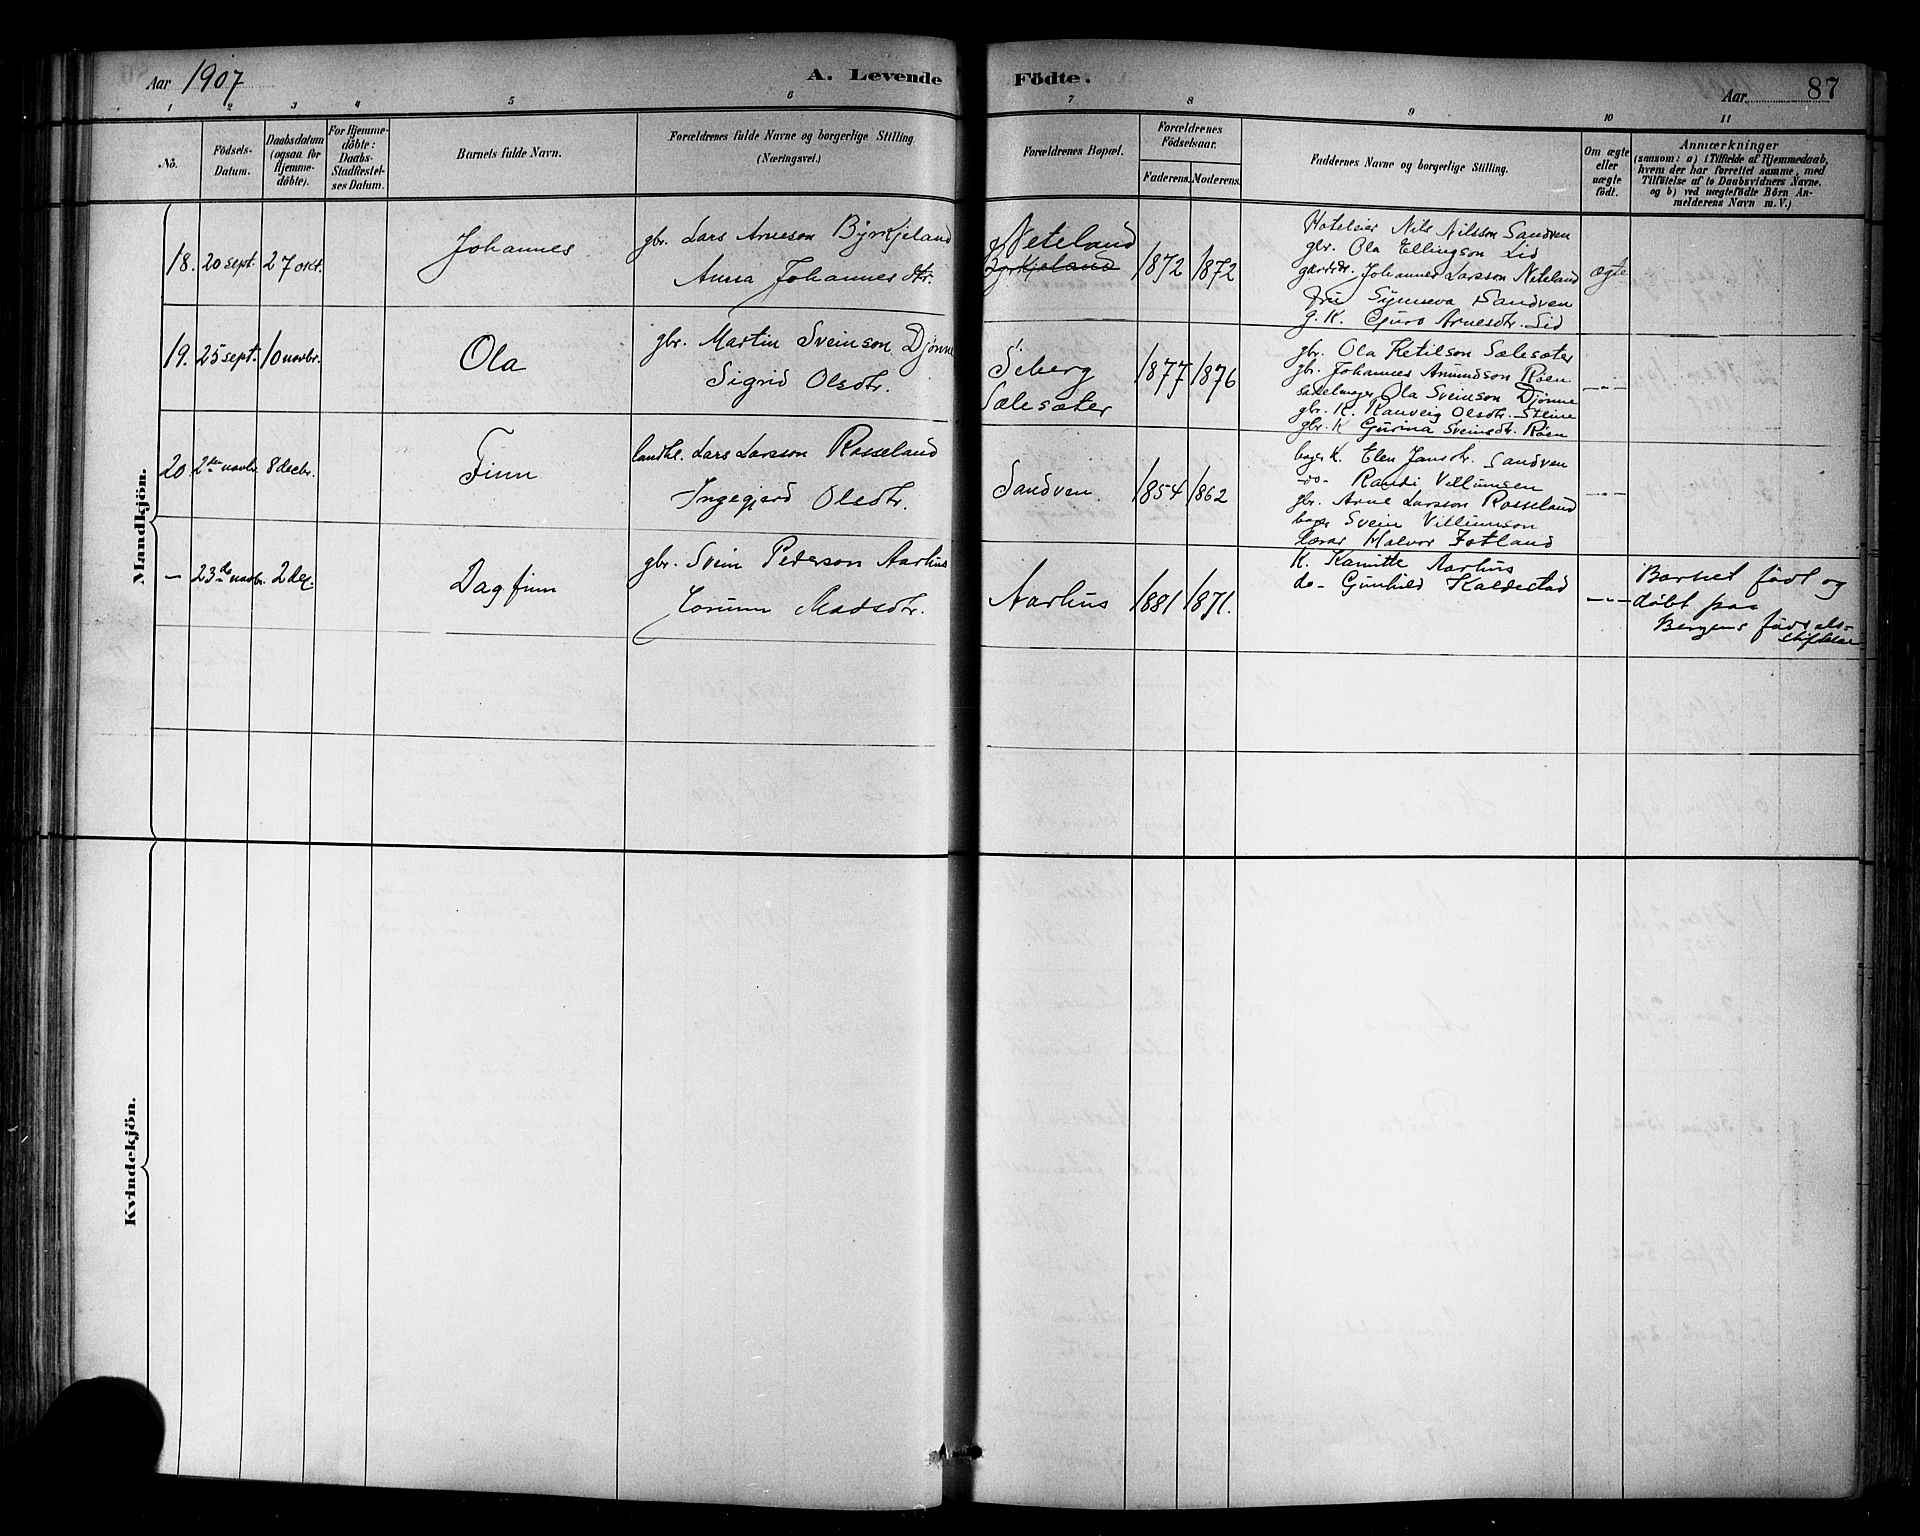 Aar 1907
A. Levende
Födte.
Aar 87
1 2 3 4 5 6 7 8 9 10 11
Nö.
Födsels-
Datum.
Daabsdatum
(ogsaa for
Hjemme-
döbte).
For Hjemme-
döbte:
Daabs-
Stadfæstel-
ses Datum.
Barnets fulde Navn.
Forældrenes fulde Navne og borgerlige Stilling.
(Næringsvei.)
Forældrenes Bopæl.
Forældrenes
Födselsaar.
Faderens. Moderens.
Faddernes Navne og borgerlige Stilling.
Om ægte
eller
uægte
födt.
Anmærkninger
(saasom: a) i Tilfælde af Hjemmedaab,
hvem der har forrettet samme, med
Tilföielse af to Daabsvidners Navne.
og b) ved uægtefödte Börn An-
melderens Navn m. V.)
Mandkjön.
18. 20 sept. 27 okt.
Johannes
gbr. Lars Arneson Byrkjeland
Anna Johannesdtr.
Neteland
Byrkjeland
1872 1872
Hoteleier Nils Nilsson Sandven
gbr. Ola Ellingson Lid
gardbr. Johannes Larsson Neteland
Fru Synneva Sandven
g. K. Guro Arnesdtr. Lid
ægte
19. 25 sept. 10 novbr.
Ola
gbr. Martin Sveinson Djønne
Sigrid Olsdtr.
Seberg
Sælesæter
1877 1876
gbr. Ola Ketilson Sælesæter
gbr. Johannes Amundson Røen
sadelmager Ola Sveinson Djønne
gbr. K. Ranveig Olsdtr. Steine
gbr. K Gurina Sveinsdtr. Røen
-"-
20. 2den novbr. 8 decbr.
Finn
landhl. Lars Larsson Rosseland
Ingegjerd Olsdtr.
Sandven.
1854 1862
bager K. Elen Jansdtr. Sandven
-do- Randi Villumsen
gbr. Arne Larsson Rosseland
bager Svein Villumson
Lærar Halvor Fotland
-"-
- 23de novbr. 2 dec.
Dagfinn
gbr. Svein Pederson Aarhus
Torunn Madsdtr.
Aarhus
1881 1871.
K. Kamitte Aarhus
do- Gunhild Kaldestad
-"-
Barnet født og
døbt paa
Bergens fødsels-
stiftelse
Kvindekjön.